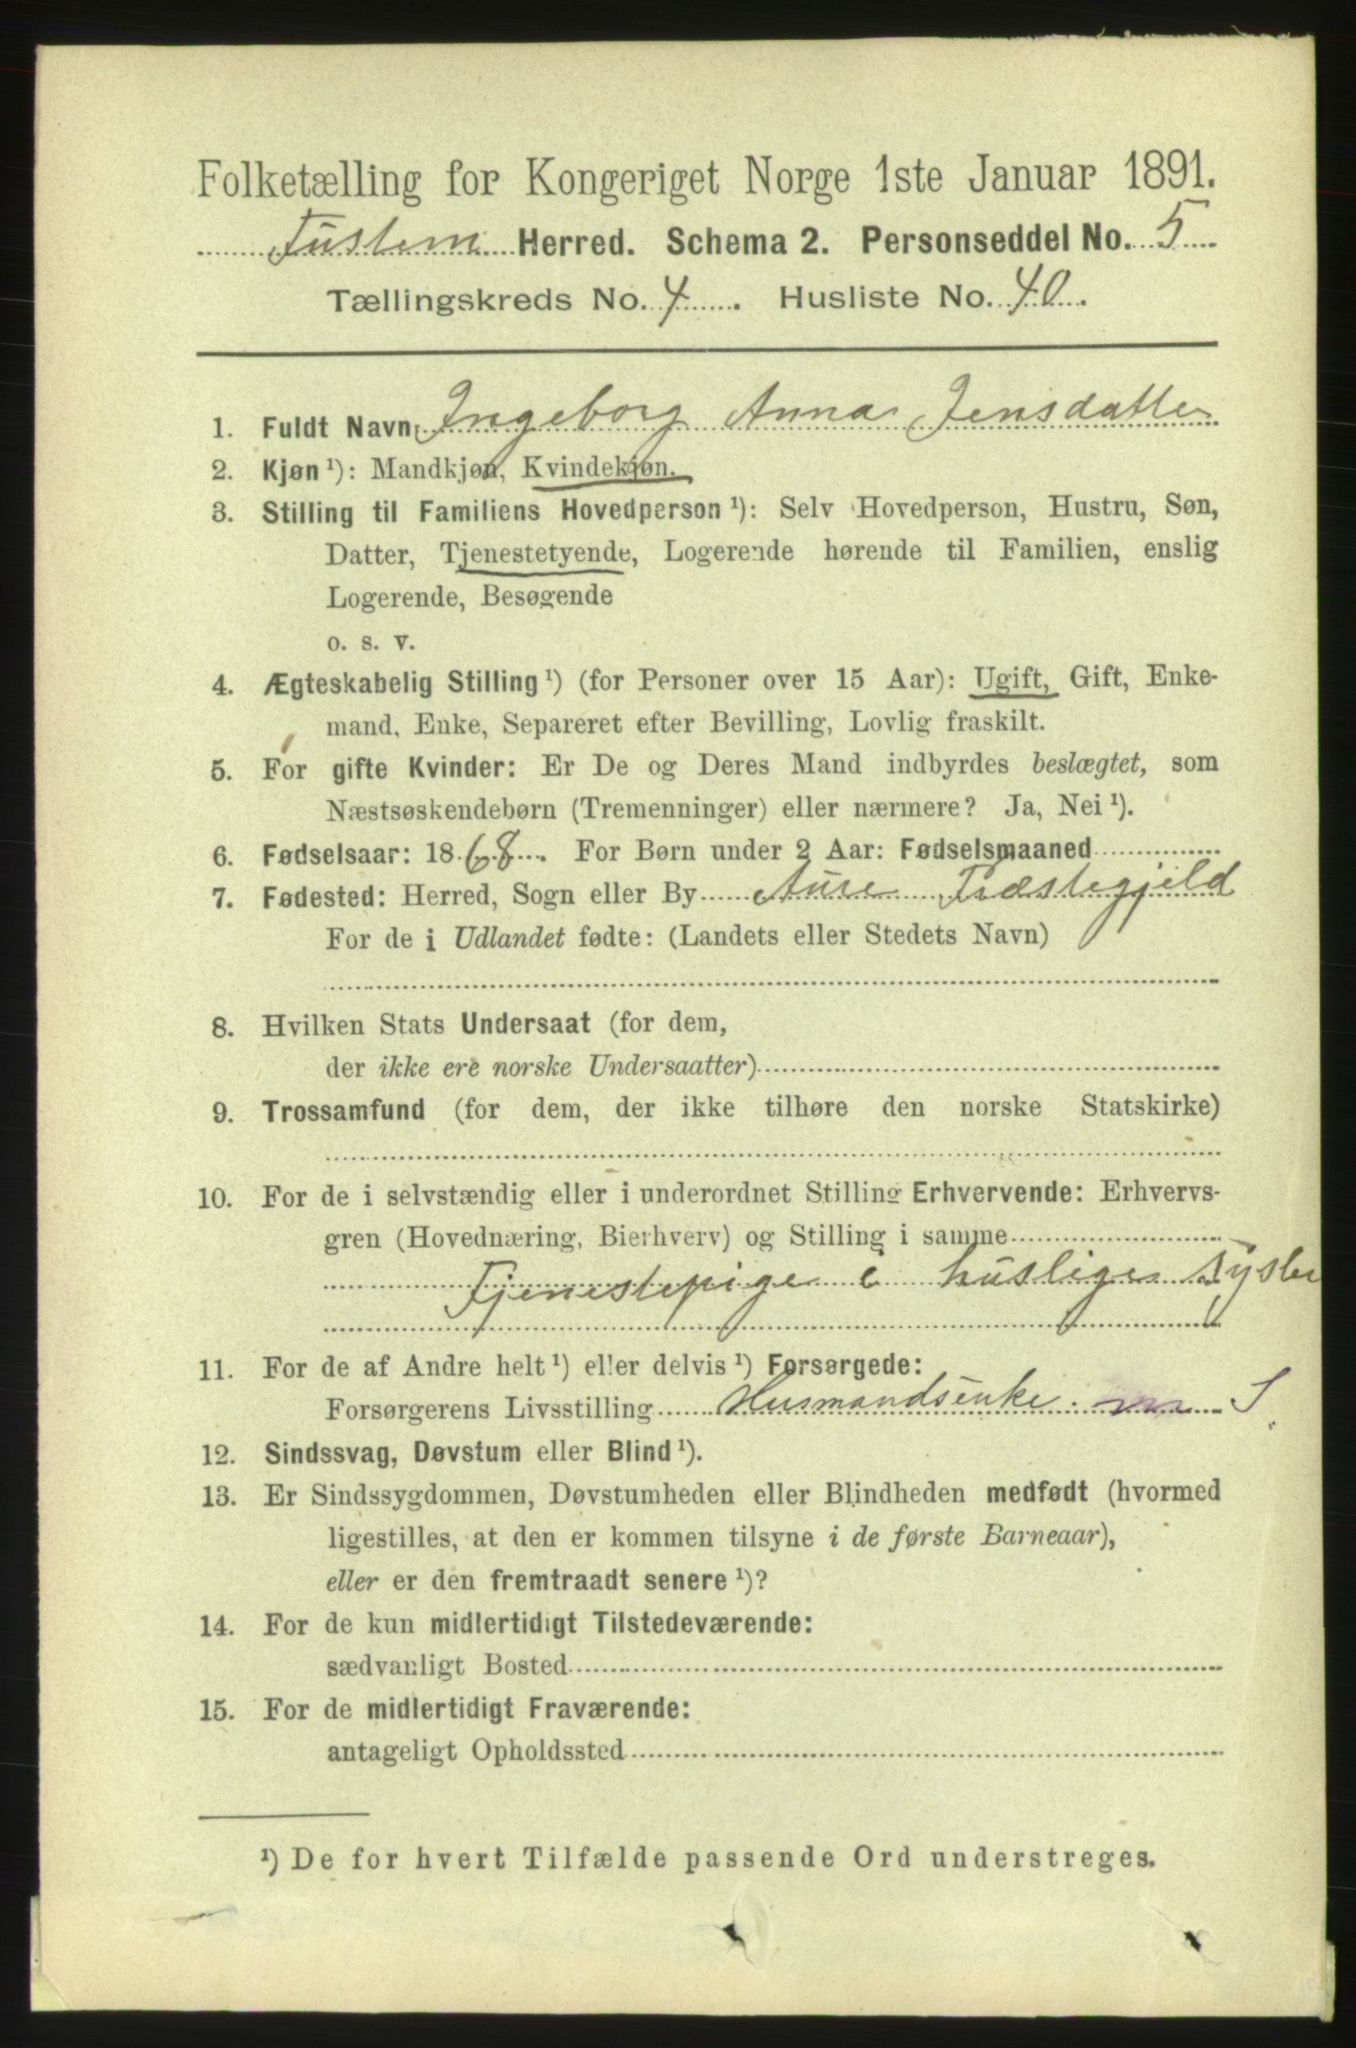 Folketælling for Kongeriget Norge 1ste Januar 1891.
Tustern Herred. Schema 2. Personseddel No. 5
Tællingskreds No. 4. Husliste No. 40.
1. Fuldt Navn Ingeborg Anna Jensdatter
2. Kjøn ¹): Mandkjøn, Kvindekjøn.
3. Stilling til Familiens Hovedperson ¹): Selv Hovedperson, Hustru, Søn,
Datter, Tjenestetyende, Logerende hørende til Familien, enslig
Logerende, Besøgende
o. s. v.
4. Ægteskabelig Stilling ¹) (for Personer over 15 Aar): Ugift, Gift, Enke-
mand, Enke, Separeret efter Bevilling, Lovlig fraskilt.
5. For gifte Kvinder: Er De og Deres Mand indbyrdes beslægtet, som
Næstsøskendebørn (Tremenninger) eller nærmere? Ja, Nei ¹).
6. Fødselsaar: 1868. For Børn under 2 Aar: Fødselsmaaned
7. Fødested: Herred, Sogn eller By Aure Præstegjeld
For de i Udlandet fødte: (Landets eller Stedets Navn)
8. Hvilken Stats Undersaat (for dem,
der ikke ere norske Undersaatter)
9. Trossamfund (for dem, der ikke tilhøre den norske Statskirke)
10. For de i selvstændig eller i underordnet Stilling Erhvervende: Erhvervs-
gren (Hovednæring, Bierhverv) og Stilling i samme
Tjenestepige i huslige Sysler
11. For de af Andre helt ¹) eller delvis ¹) Forsørgede:
Forsørgerens Livsstilling Husmandsenke m S.
12. Sindssvag, Døvstum eller Blind ¹).
13. Er Sindssygdommen, Døvstumheden eller Blindheden medfødt (hvormed
ligestilles, at den er kommen tilsyne i de første Barneaar),
eller er den fremtraadt senere ¹)?
14. For de kun midlertidigt Tilstedeværende:
sædvanligt Bosted
15. For de midlertidigt Fraværende:
antageligt Opholdssted
¹) De for hvert Tilfælde passende Ord understreges.